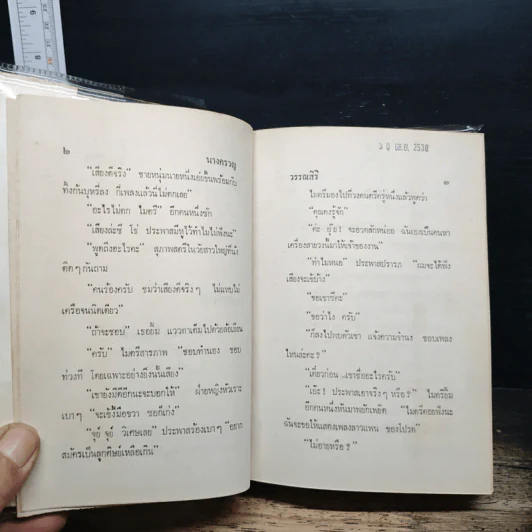 ๒ นางครวญ
"เสียงดีจริง" ชายหนุ่มนายหนึ่งเอ่ยขึ้นพร้อมกับ
ทิ้งก้นบุหรี่ลง ก็เพลงแล้วนี่ไม่ตกเลย"
"อะไรไม่ตก ไมตรี" อีกคนหนึ่งซัก
"เสียงล่ะซี โธ่ ประพาสมีหูไว้ทำไมไม่ฟังนะ"
"พูดถึงอะไรคะ" สุภาพสตรีในวัยสาวใหญ่ที่นั่ง
ติดๆ กันถาม
"คนร้องครับ ชมว่าเสียงดีจริงๆ ไม่แหบไม่
เครือจนนิดเดียว"
"ถ้าจะชอบ" เธอยิ้ม แววตาเต็มไปด้วยล้อเลียน
"ครับ" ไมตรีสารภาพ "ชอบทำนอง ชอบ
ท่วงที โดยเฉพาะอย่างยิ่งนั้นเสียง"
"เขายังมีดีอีกนะจะบอกให้" ฝ่ายหญิงหัวเราะ
เบาๆ "จะเข้งี้มือขวา ซอก็เก่ง"
"จุ๊ย์ จุ๊ย์ วิเศษเลย" ประพาสร้องเบาๆ "อยาก
สมัครเป็นลูกศิษย์เหลือเกิน"
๓ ๐ เม.ย. 2530
วรรณสิริ ๓
ไมตรีมองไปที่วงดนตรีครู่หนึ่งแล้วพูดว่า
"คุณคงรู้จัก"
"ค่ะ อุ๊ย! จะอวดสักหน่อย ฉันเองเป็นคนหา
เครื่องสายวงนี้มาให้เจ้าของงาน"
"ทำไมหนอ" ประพาสปรารภ "ถมจะได้ฟัง
เสียงจะเข้บ้าง"
"ขอเขารึคะ"
"ขอว่าไง ครับ"
"ก็ลงไปพบตัวเขา แจ้งความจำนง ชอบเพลง
ไหนล่ะคะ?"
"เดี๋ยวก่อน เขาชื่ออะไรครับ"
"เอ๊ะ! ประพาสเอาจริงๆ หรือ?" ไมตรียิ้ม
อีกคนหนึ่งหันมาพยักเพยิด "ไมตรีคอยฟังนะ
ฉันจะขอให้แสดงเพลงลาวแพน ของโปรด"
"ไม่อายหรือ?"